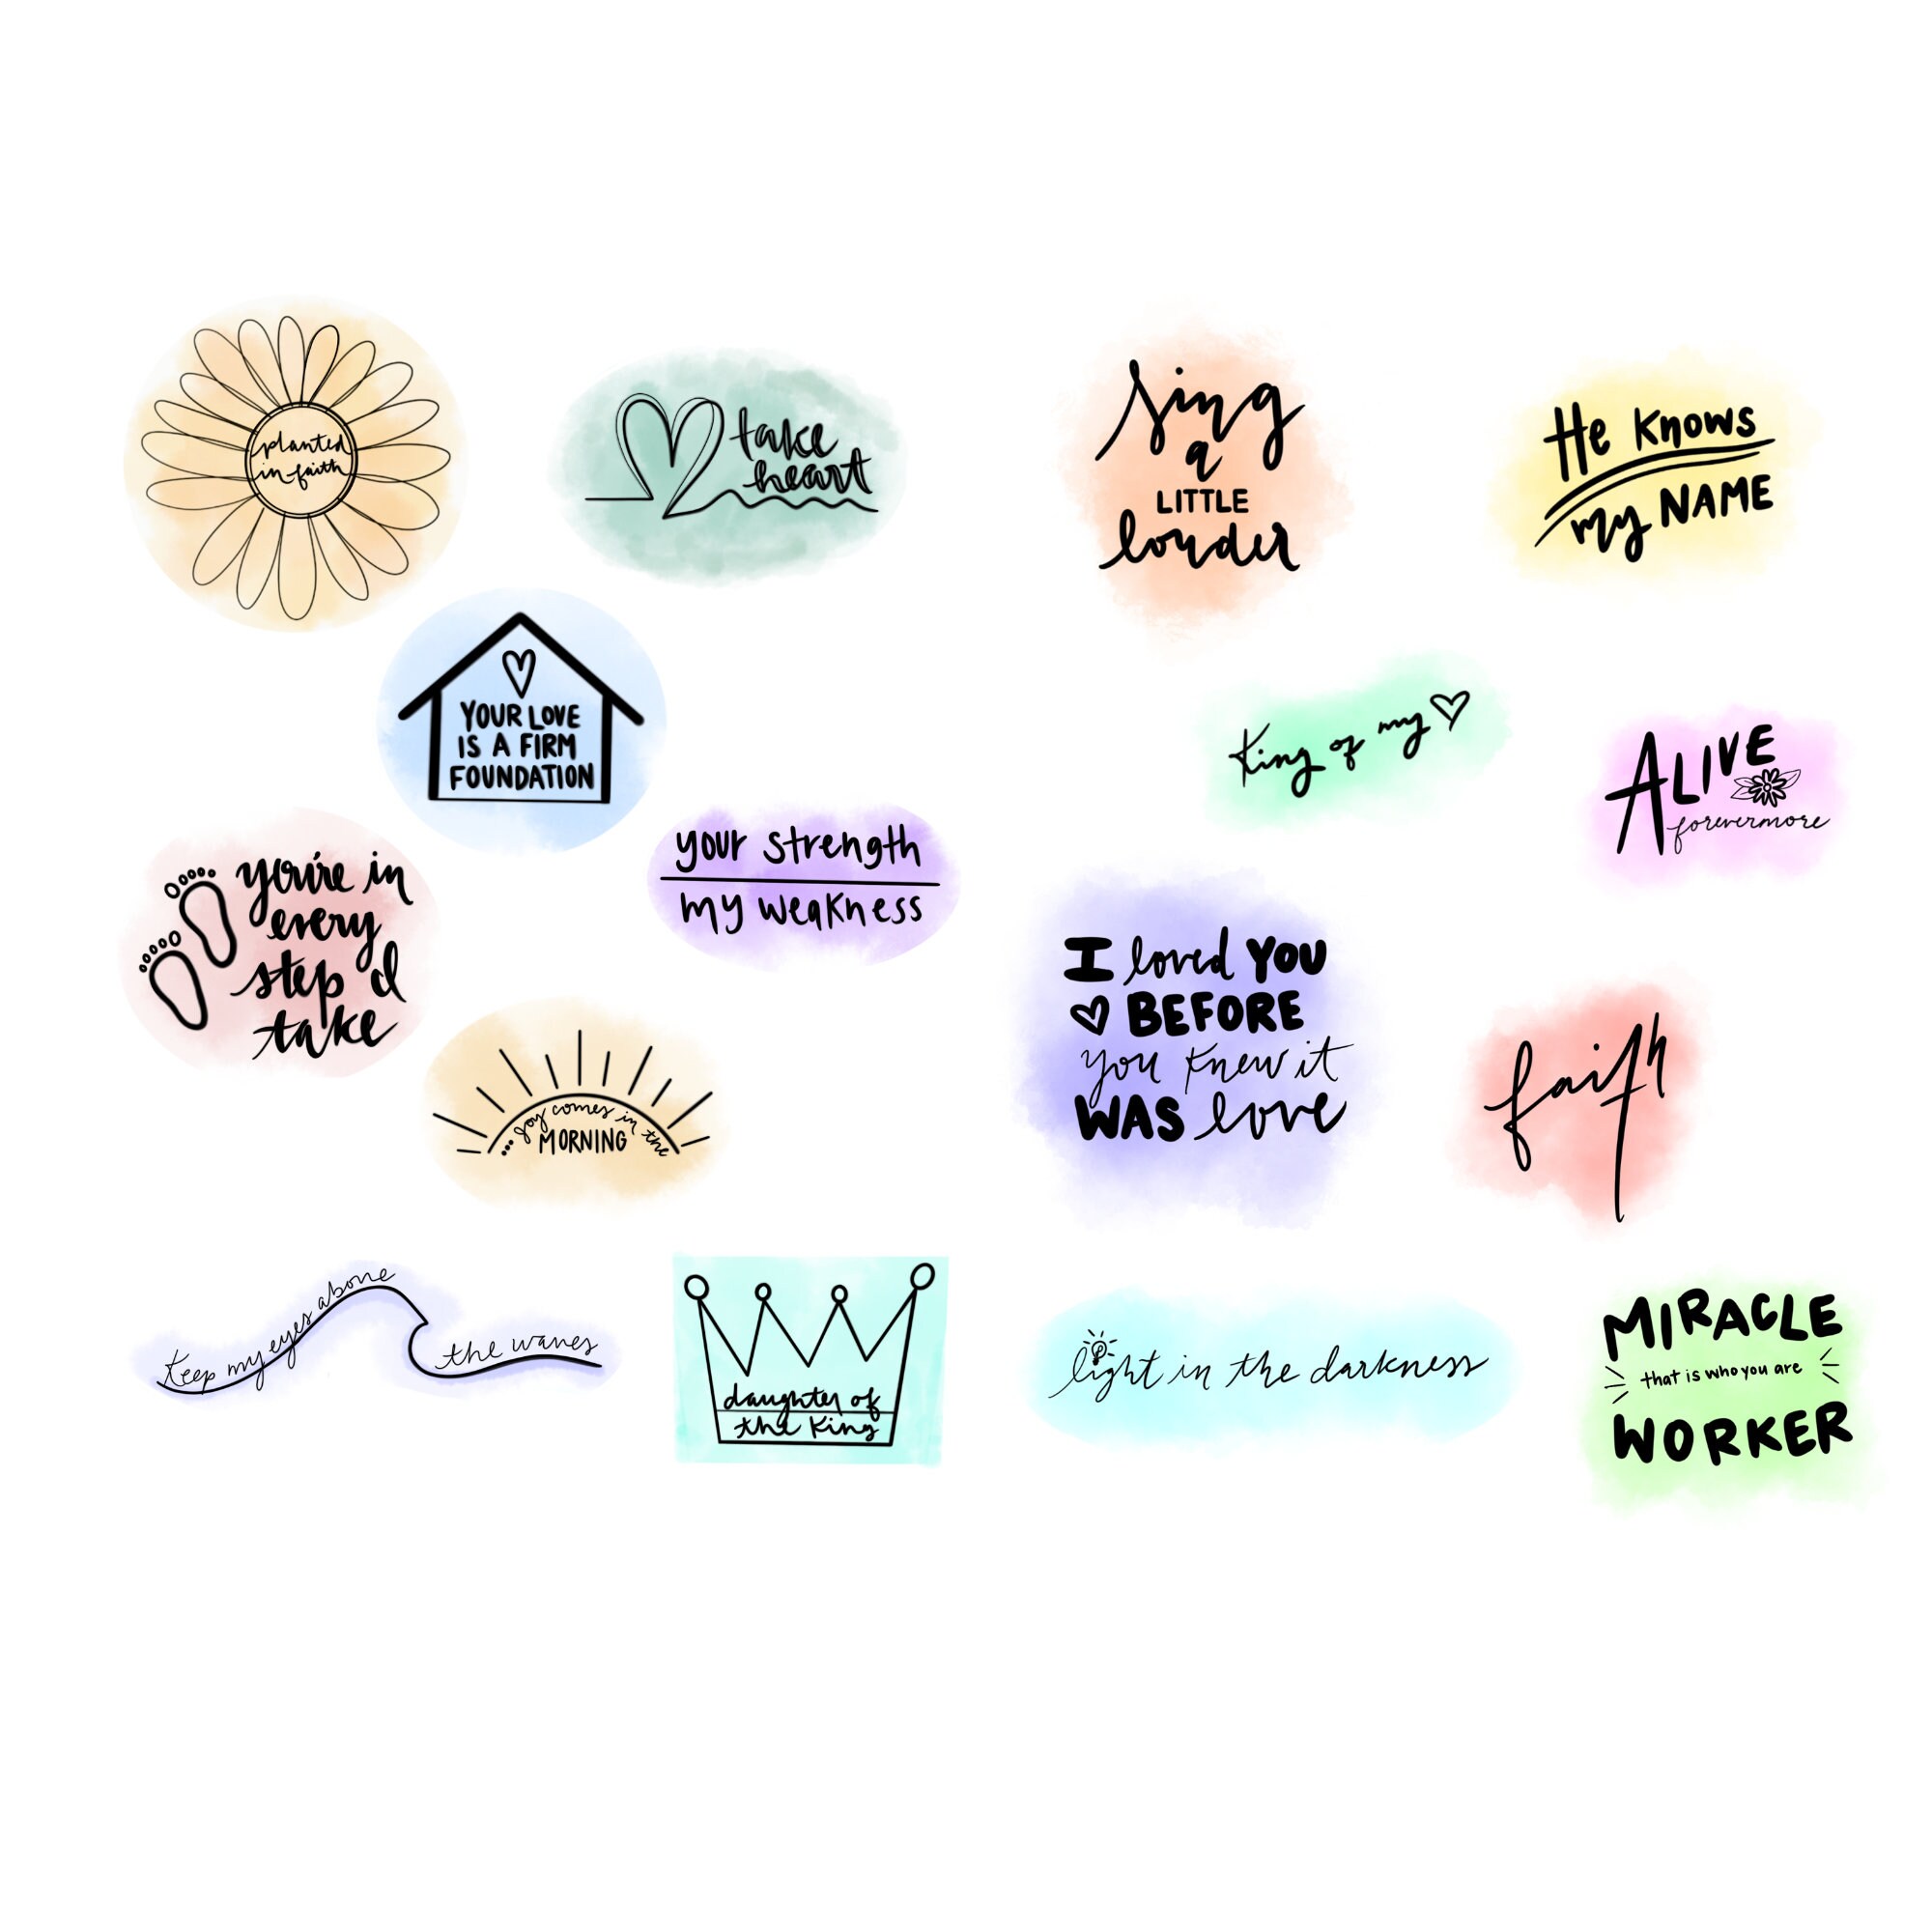 planted
in faith
take
heart
YOUR LOVE
IS A FIRM
FOUNDATION
you're in
every
step I
take
your strength
my weakness
...joy comes in the
MORNING
Keep my eyes above
the waves
daughter of
the King
Sing
a
LITTLE
louder
He Knows
my NAME
King of my
ALIVE
forevermore
I loved YOU
BEFORE
you knew it
WAS love
faith
light in the darkness
MIRACLE
that is who you are
WORKER